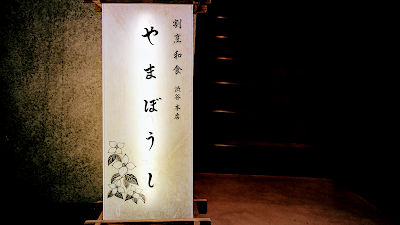 割烹 和食 渋谷 本店
やまぼうし